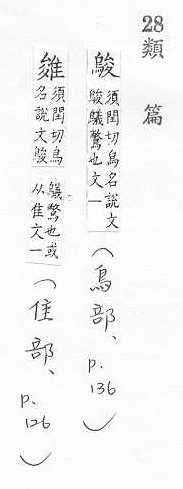 28 類篇
鵔 須閏切鳥名說文
鵔鸃鷩也文一
(鳥部、p.136)
須閏切鳥
名說文鵔
鸃鷩也或
从隹文一
(隹部、p.126)